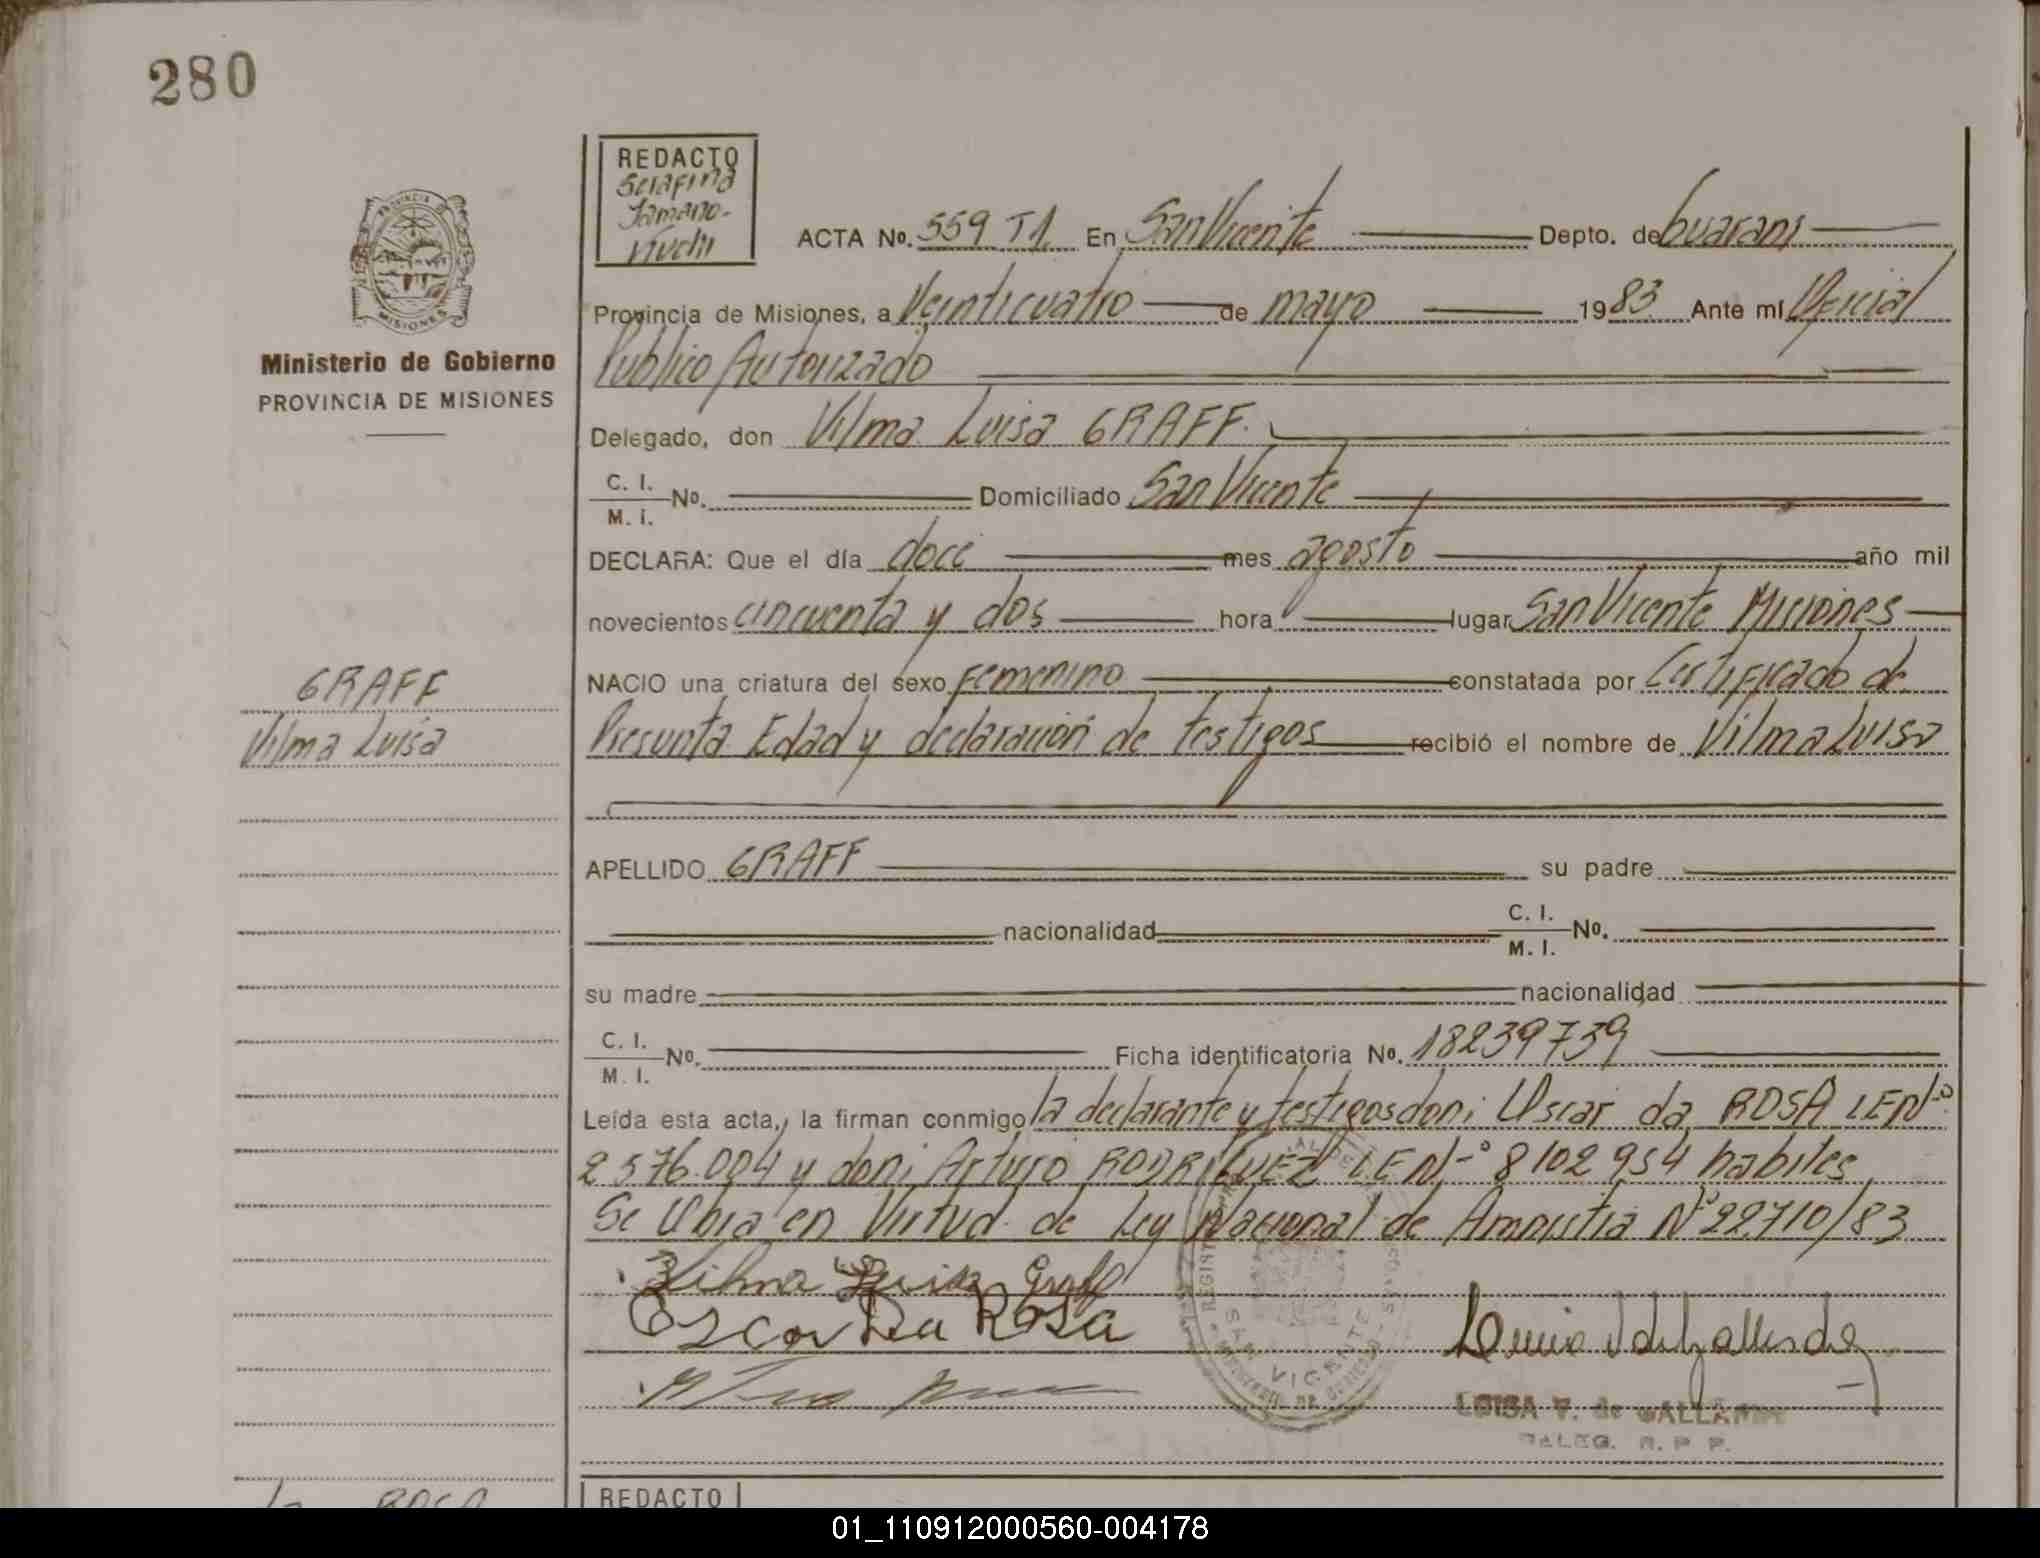 280
REDACTO
Serafina
PROVINCIA DE
MISIONES
Ministerio de Gobierno
PROVINCIA DE MISIONES
ACTA No. 559 T1. En San Vicente Depto. de Guarani
Provincia de Misiones, a Veinticuatro de mayo 1983 Ante mi Oficial
Publico Autorizado
Delegado, don Vilma Luisa GRAFF.
C. I.
M. I. No. Domiciliado San Vicente
DECLARA: Que el día doce mes agosto año mil
novecientos cincuenta y dos hora lugar San Vicente Misiones
GRAFF
Vilma Luisa
NACIO una criatura del sexo femenino constatada por Certificado de
Presunta Edad y declaración de testigos recibió el nombre de Vilma Luisa
APELLIDO GRAFF su padre
nacionalidad C. I.
M. I. No.
su madre nacionalidad
C. I.
M. I. No. Ficha identificatoria No. 18239739
Leída esta acta, la firman conmigo la declarante y testigos don: Oscar da ROSA LEN-º
2576.004 y don: Arturo RODRIGUEZ LEN-º 8102954 habiles
Se Obra en Virtud de Ley Nacional de Amnistia Nº 22.710/83
Vilma Luisa Graff
Oscar Da Rosa
SAN VICENTE
LUISA V. de GALLARDO
DALEG. R. P. P.
ROSA
REDACTO
01_110912000560-004178